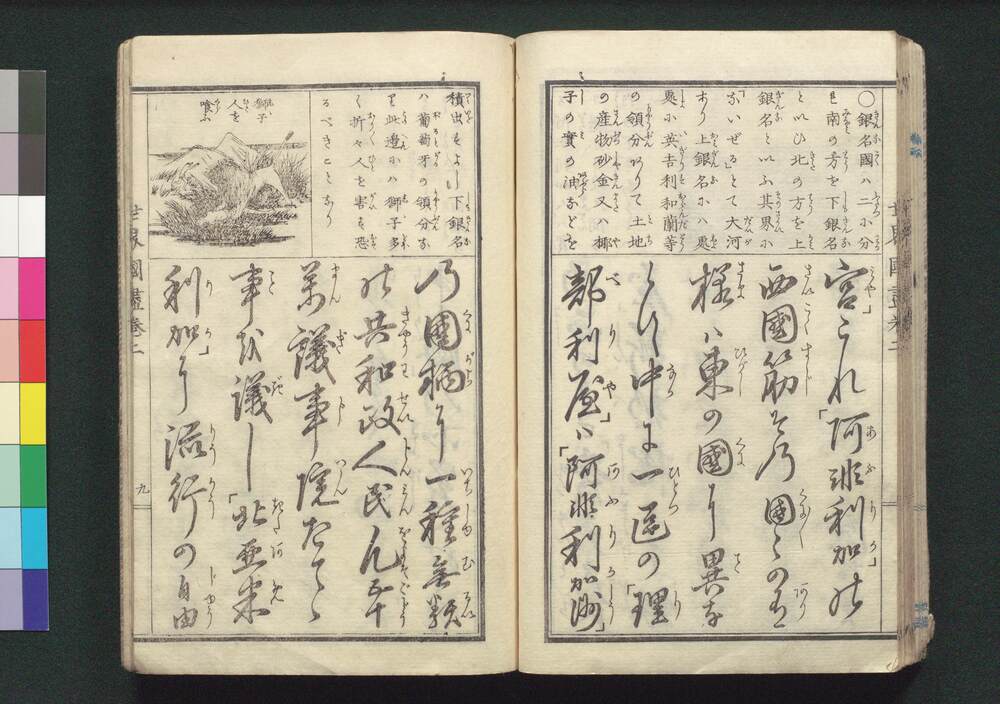 〇銀名國ハ二ニ分
も南の方を下銀名
と以ひ北の方を上
銀名と以ふ其界ニ
「ないぜる」とて大河
あり上銀名ニハ悪
悪ニ英吉利和蘭等
の領分ありて土地
の産物砂金又ハ椰
子の實の油などを
宮これ「阿非利加」の
西國筋其乃國々の有
様ハ東の國に異な
らひ中に一區の「理
部利屋」ハ「阿非利加洲」
積出もよし下銀名
ハ葡萄牙の領分な
り此邊ニハ獅子多
く折々人を害も恐
るべきことなり
獅子
人を
喰ふ
乃國柄に一種無類
の共和政人民凡五十
萬議事院たてゝ
事を議し「北亜米
利加」に流行の自由
世界國盡巻二
九